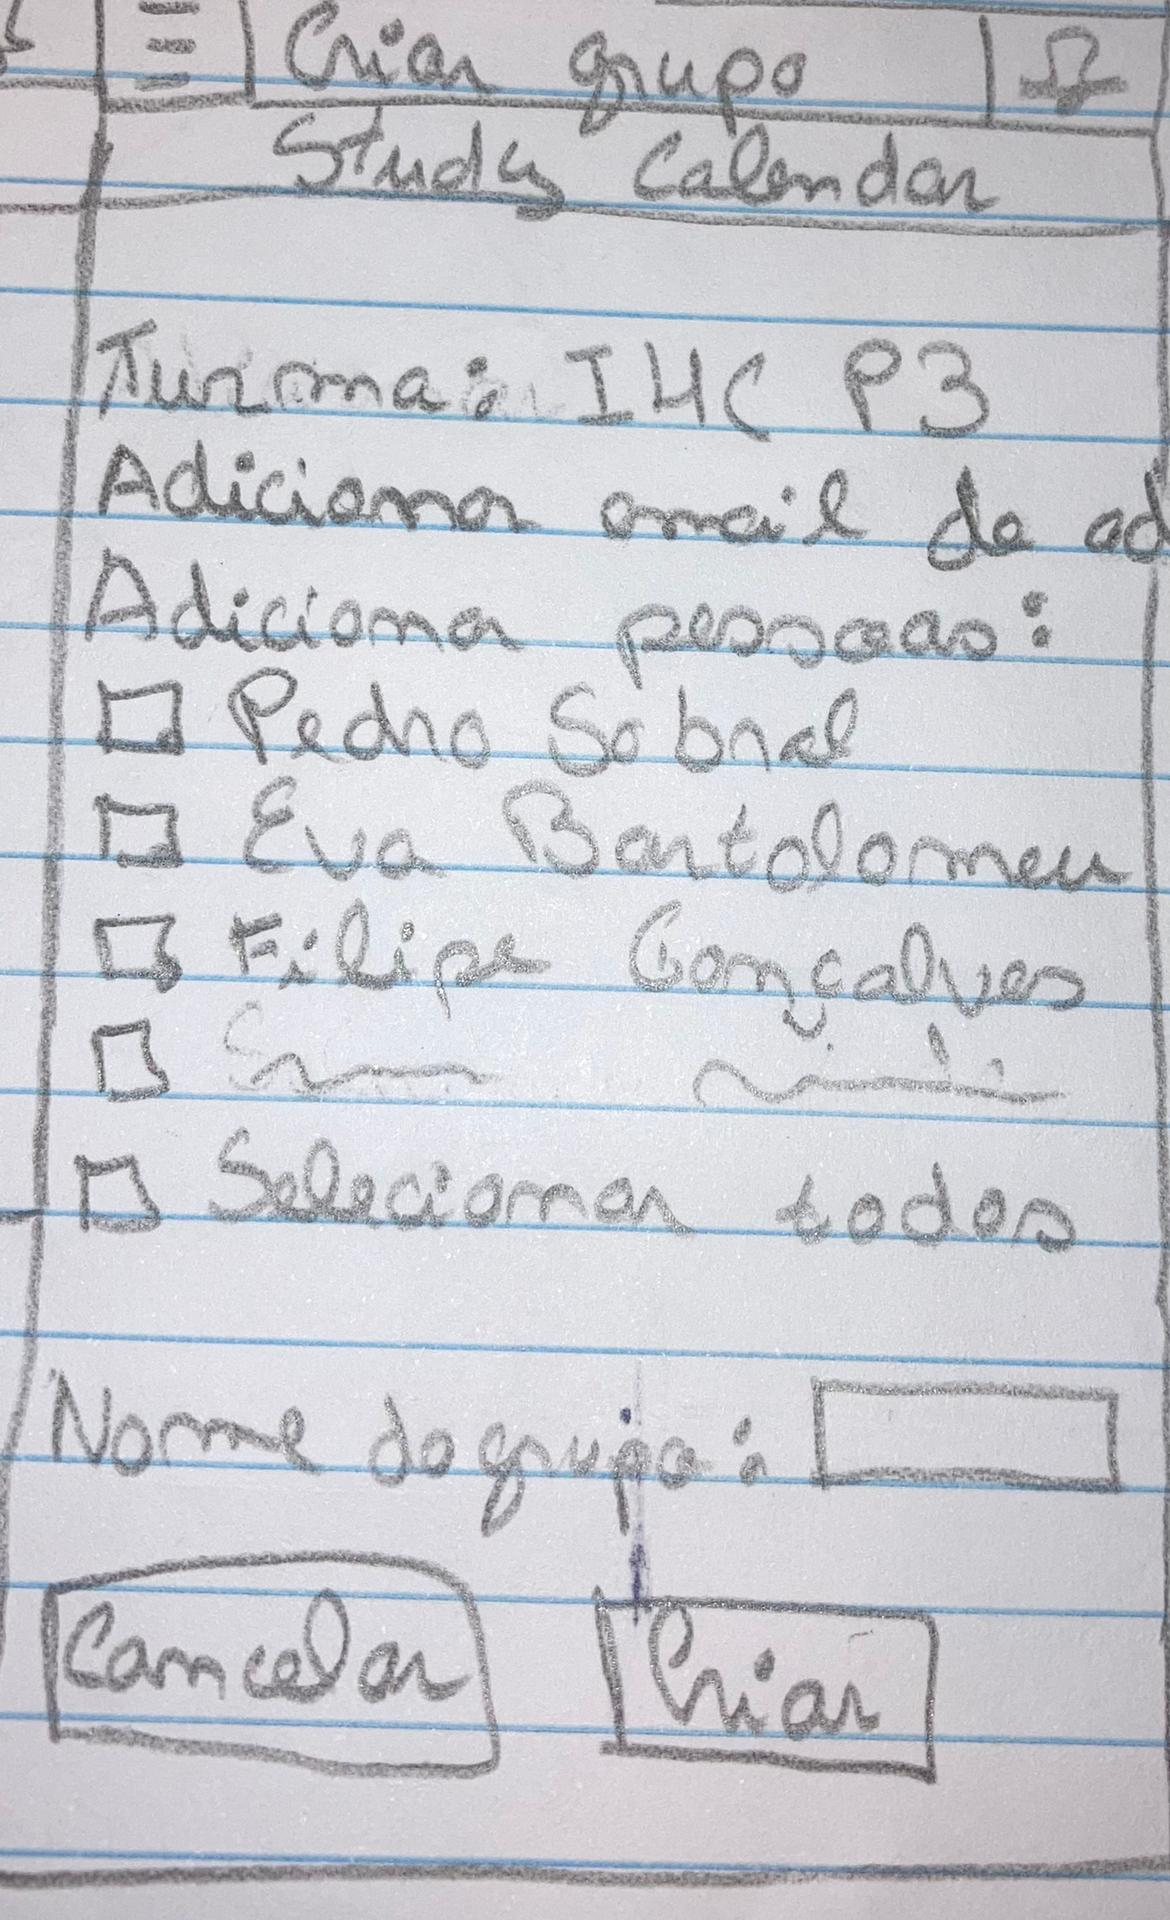 Criar grupo
Study Calendar
Turma: IHC P3
Adicionar email de ad
Adicionar pessoas:
Pedro Sobral
Eva Bartolomeu
Filipe Gonçalves
Selecionar todos
Nome do grupo:
Cancelar
Criar